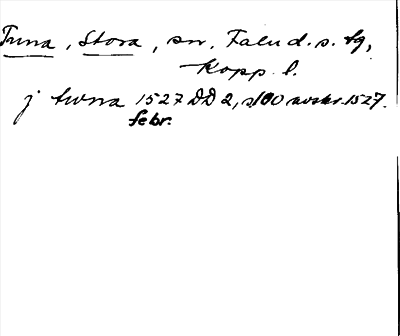 Tuna, Stora, sn, Falu d. s. tg,
Kopp. l.
j twna 1527 DD 2, s 100 avskr. 1527.
febr.